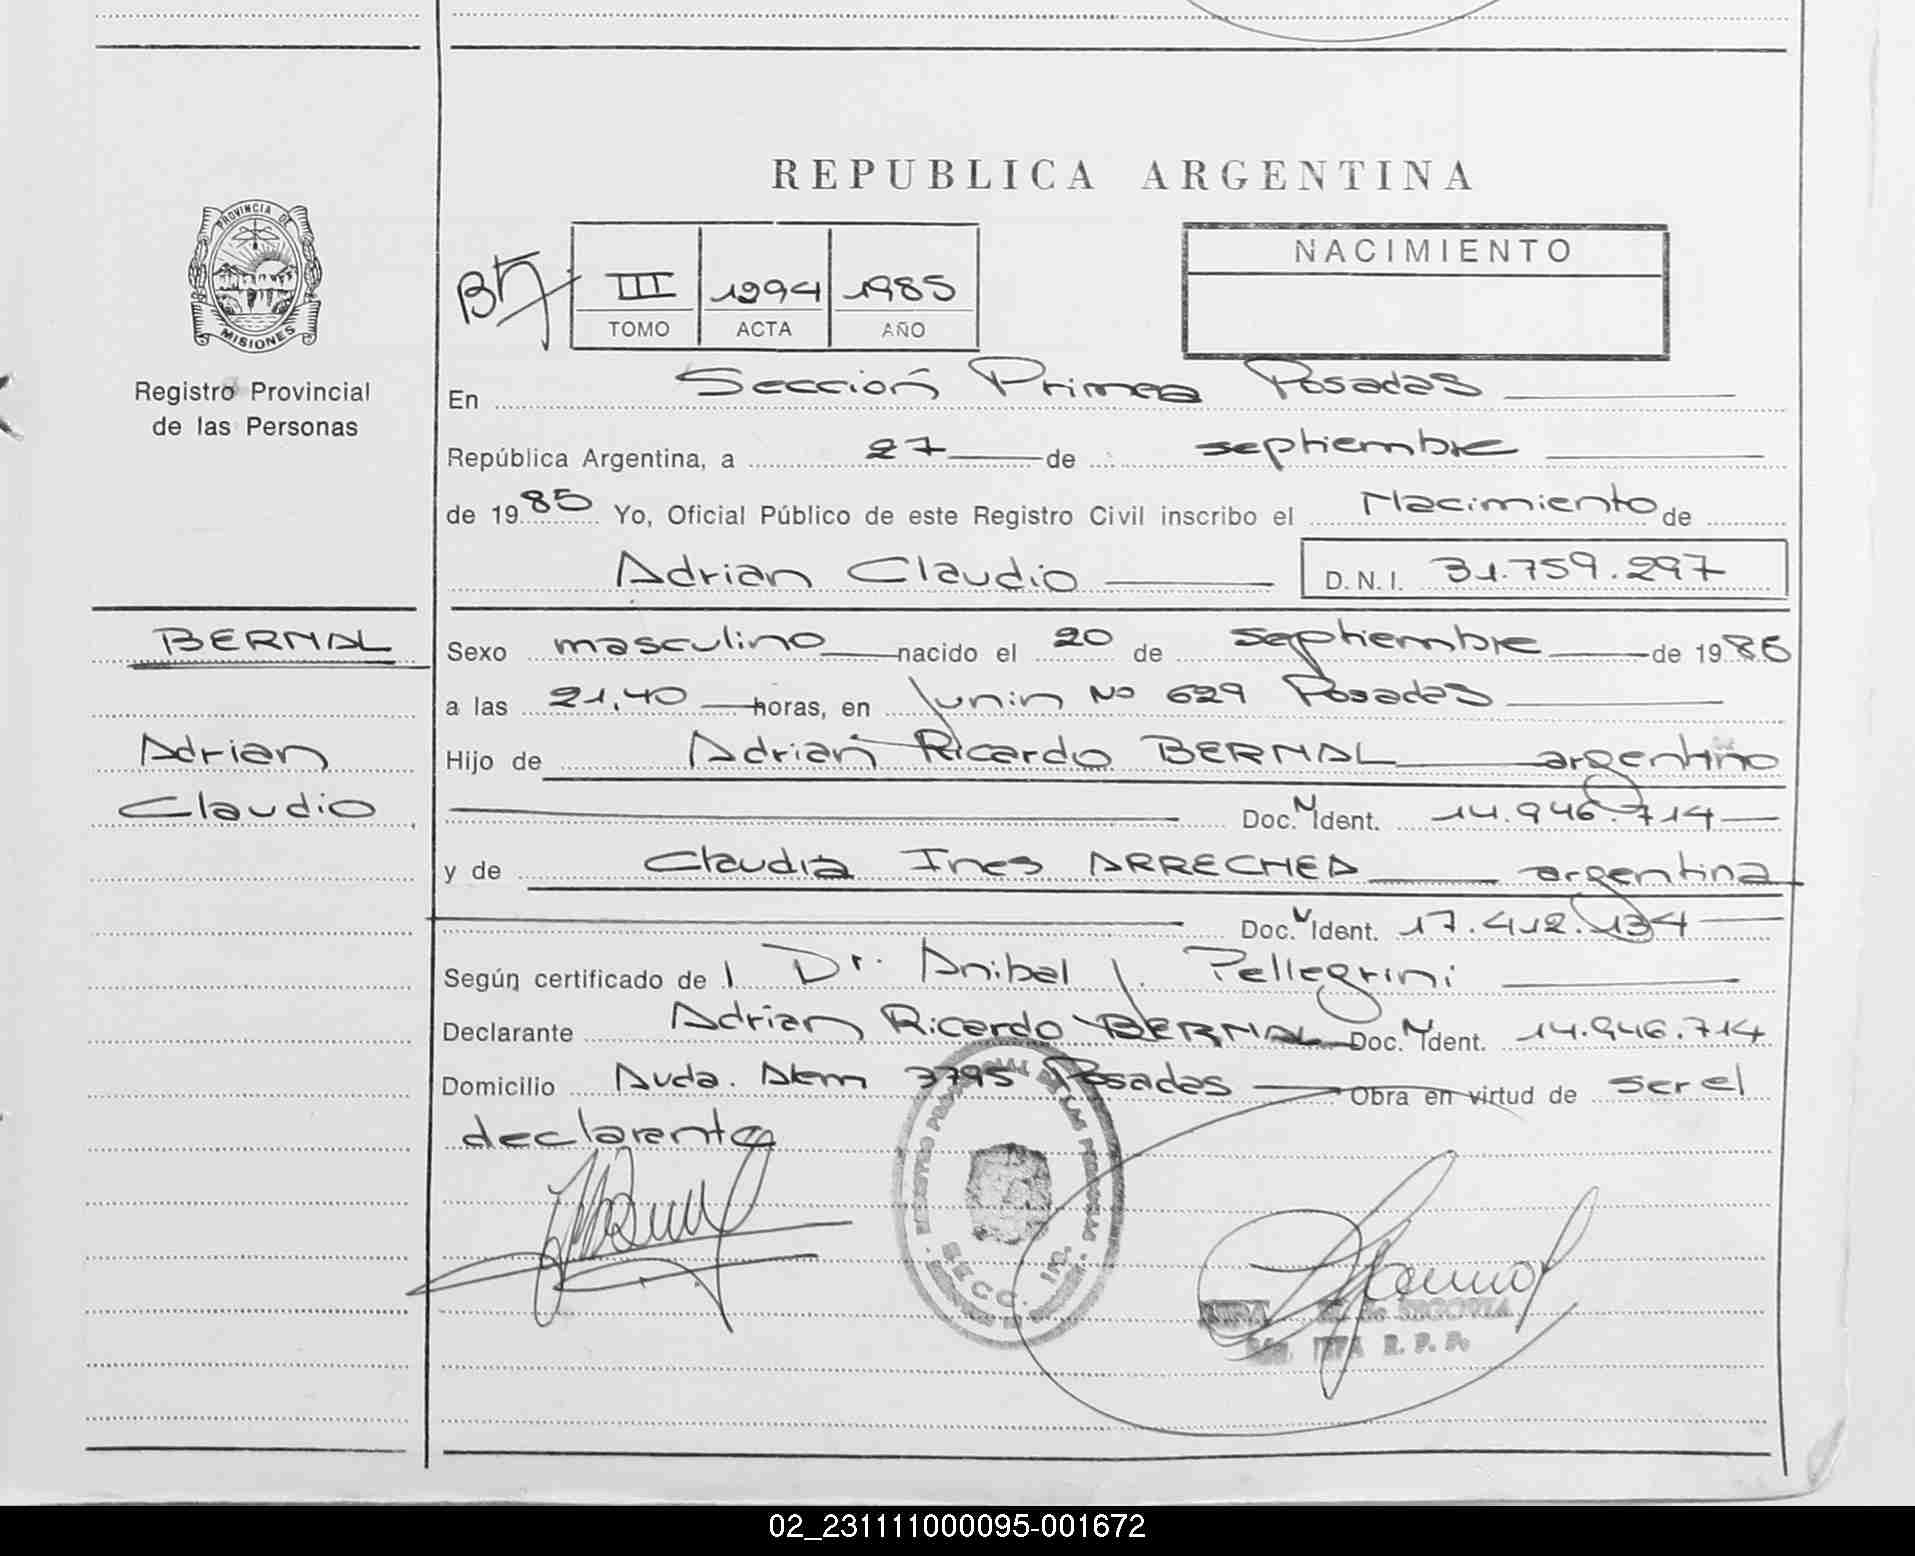 REPUBLICA ARGENTINA
PROVINCIA DE
MISIONES
Registro Provincial
de las Personas
III 1294 1985
TOMO ACTA AÑO
NACIMIENTO
En Sección Primera Posadas
República Argentina, a 27 de septiembre
de 1985 Yo, Oficial Público de este Registro Civil inscribo el Nacimiento de
Adrian Claudio D.N.I. 31.759.297
BERNAL
Adrian
Claudio
Sexo masculino nacido el 20 de septiembre de 1985
a las 21,40 horas, en Junin No 629 Posadas
Hijo de Adrian Ricardo BERNAL argentino
Doc. N Ident. 14.946.714
y de Claudia Ines ARRECHEA argentina
Doc. Ident. 17.412.134
Según certificado de Dr. Anibal J. Pellegrini
Declarante Adrian Ricardo BERNAL Doc. N Ident. 14.946.714
Domicilio Avda. Alem 3795 Posadas Obra en virtud de ser el
declarante
REGISTRO PROVINCIAL DE LAS PERSONAS
SECC. 1ra.
SEGOVIA
R. P. P.
02_231111000095-001672